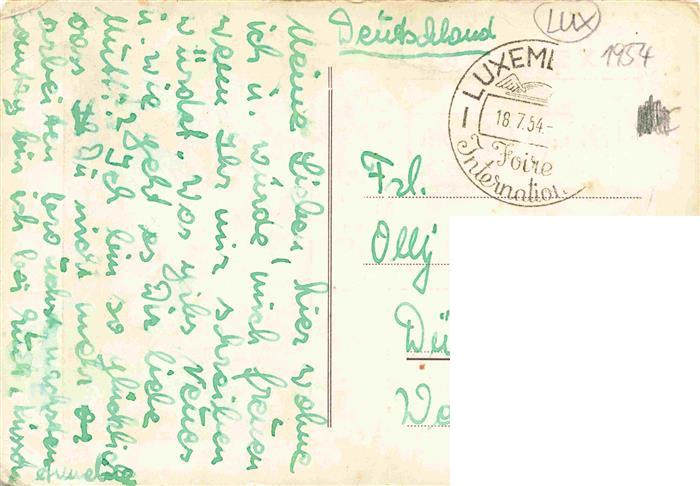 Deutschland
LUX
1954
LUXEM
18.7.54.-
Foire
Internation
Frl.
Olly
Dü
We
Meine Lieben! Hier wohne
ich u. würde mich freuen
wenn Ihr mir schreiben
würdet. Was gibs Neues
u. wie geht es Dir liebe
Mutti? Ich bin so glücklich
das Du nicht mehr so
arbeiten
bin ich bei